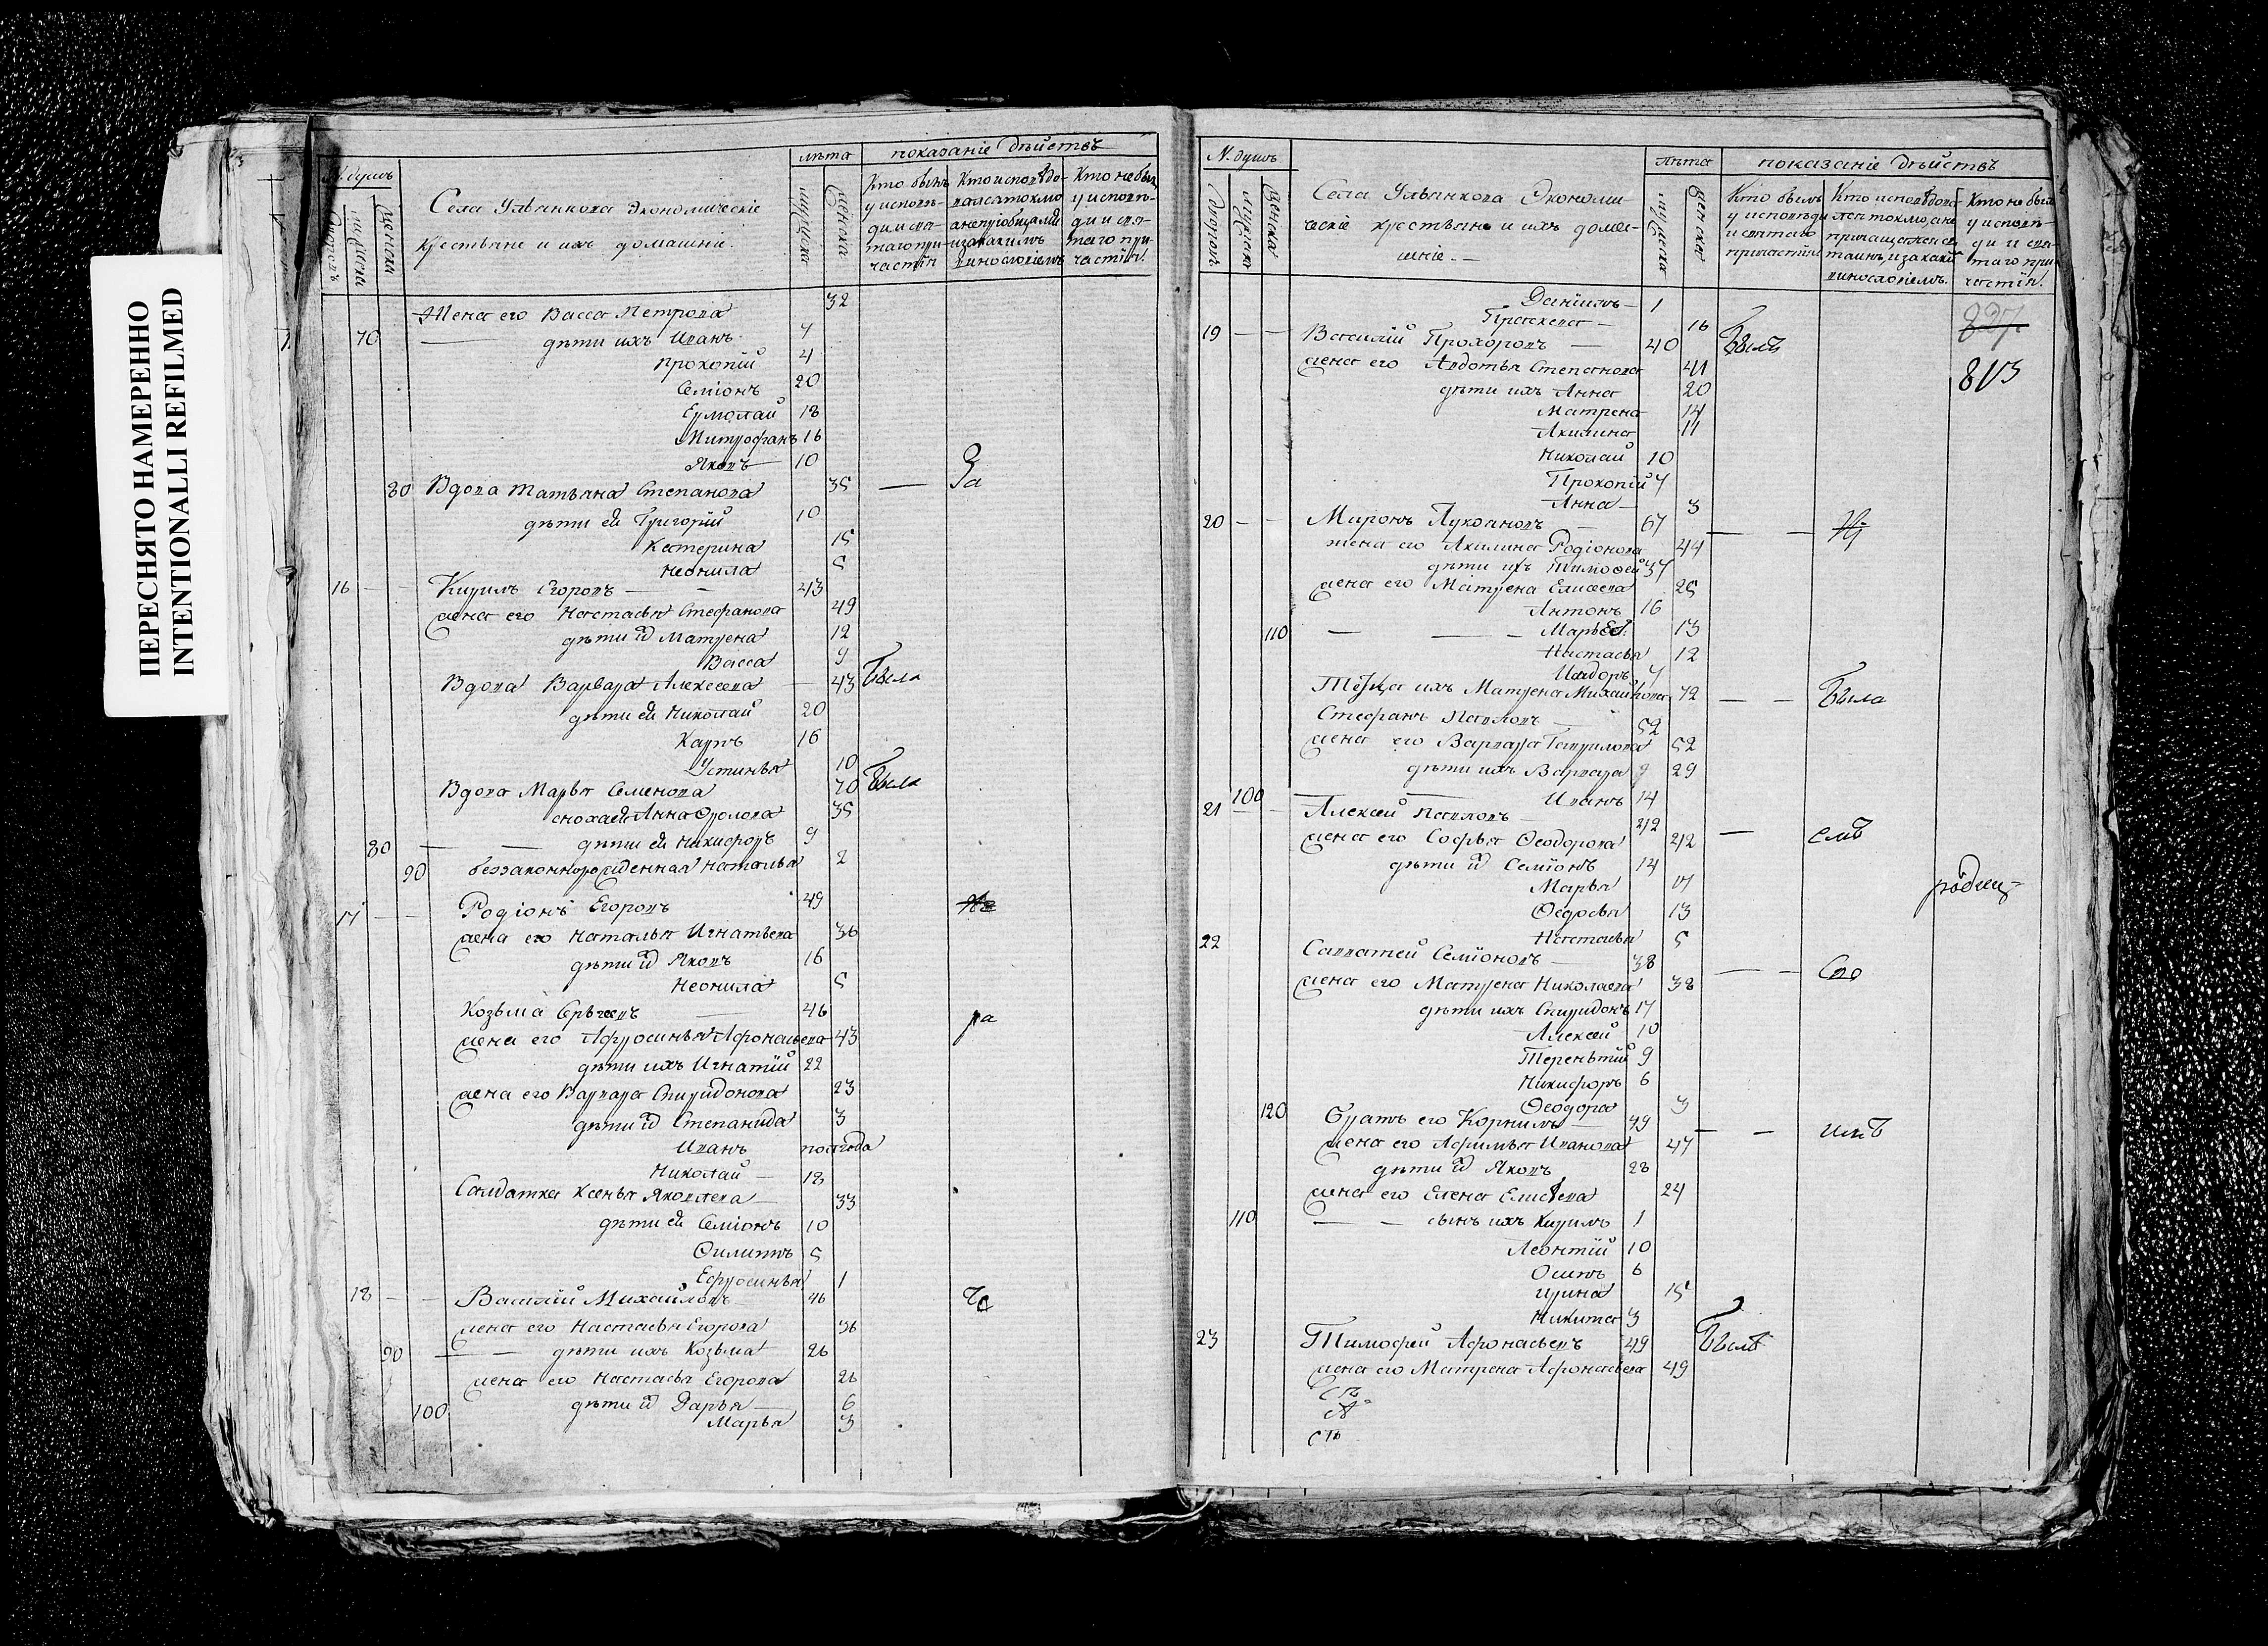 ПЕРЕСНЯТО НАМЕРЕННО
INTENTIONALLI REFILMED
лѣта показаніе дѣйствъ
Села Ульянкова Экономическіе
крестьяне и ихъ домашніе.
мужеска женска
Кто былъ у исповѣди и святаго причастія
Кто не былъ у исповѣди и святаго причастія.
Жена его Васса Петрова 32
70 — дѣти ихъ Иванъ 7
Прокопій 4
Семіонъ 20
Ермолай 18
Митрофанъ 16
Яковъ 10
80 Вдова Татьяна Степанова 35 — За
дѣти ей Григорій 10
Катерина 15
Неонила 5
16 — — Кирилъ Егоровъ — 43
жена его Настасья Стефанова 49
дѣти их Матрена 12
Васса 9
Вдова Варвара Алексеева — 43 Была
дѣти ей Николай 20
Карпъ 16
Устинья 10
Вдова Марья Семенова 70 Была
сноха ей Анна Фролова 35
80 — — дѣти ей Никифоръ 9
90 беззаконнорожденная Наталья 2
17 — — Родіонъ Егоровъ 49
жена его Наталья Игнатьева 36
дѣти их Яковъ 16
Неонила 5
Козьма — 46 ра
жена его Афросинья Афонасьева 43
дѣти ихъ Игнатій 22
жена его Варвара Спиридонова 23
дѣти их Степанида 3
Иванъ полгода
Николай — 18
Салдатка Ксенья Яковлева — 33
дѣти ей Семіонъ 10
Филиппъ 5
Ефросинья 1
18 — — Василій Михайловъ — 46
жена его Настасья Егорова 36
90 — — дѣти ихъ Козьма 26
жена его Настасья Егорова 26
100 дѣти их Дарья — 6
Марья 3
N. душъ лѣта показаніе дѣйствъ
Села Ульянкова Экономи-
ческіе крестьяне и ихъ домаш-
ніе. —
дворовъ мужеска женска мужеска женска
Кто былъ у исповѣди и святаго причастія
Кто не былъ у исповѣди и святаго причастія.
Даніилъ — 1
Праскева — 16
827
19 — — Василій Прохоровъ — 40 Былъ
жена его Авдотья Степанова 41
813
дѣти ихъ Анна 20
Матрена 14
Акилина 11
Николай 10
Прокопій 7
Анна — 3
20 — — Миронъ Лукьяновъ — 67
жена его Акилина Родіонова 44 — —
дѣти ихъ Тимофей 37
жена его Матрена Елисеева 25
Антонъ 16
110 — — — Марья 13
Настасья 12
Исидоръ 7
Матрена Михайлова 72 — — Была
Стефанъ Павловъ — 52
жена его Варвара Гаврилова 52
дѣти ихъ Варвара 29
100 — Иванъ 14
21 — Алексей Павловъ — 42
жена его Софья Феодорова 42 — слѣ
дѣти их Семіонъ 14
Марья 17
Федосья 13
Настасья 5
22 Савватей Семіоновъ — 38
жена его Матрена Николаева 38 — —
дѣти ихъ Спиридонъ 17
Алексей 10
Терентій 9
Никифоръ 6
120 Феодора 3
Братъ его Корнилъ — 49
жена его Афимья Иванова 47 — —
дѣти их Яковъ 28
жена его Елена Елисѣева 24
110 — — сынъ ихъ Кирилъ 1
Леонтій 10
Осипъ 6
Ирина 15
Никита 3
23 Тимофей Афонасьевъ 49 Былъ
жена его Матрена Афонасьева 49